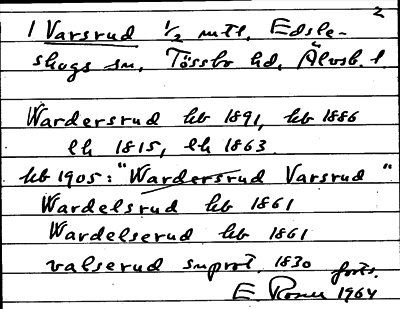 2
1 Varsrud 1/2 mtl, Edsle-
skogs sn, Tössbo hd, Älvsb. l.
Wardersrud hb 1891, hb 1886
lk 1815, lk 1863
hb 1905: "Wardersrud Varsrud"
Wardelsrud hb 1861
Wardelserud hb 1861
valserud snprot. 1830 forts.
E. 1964